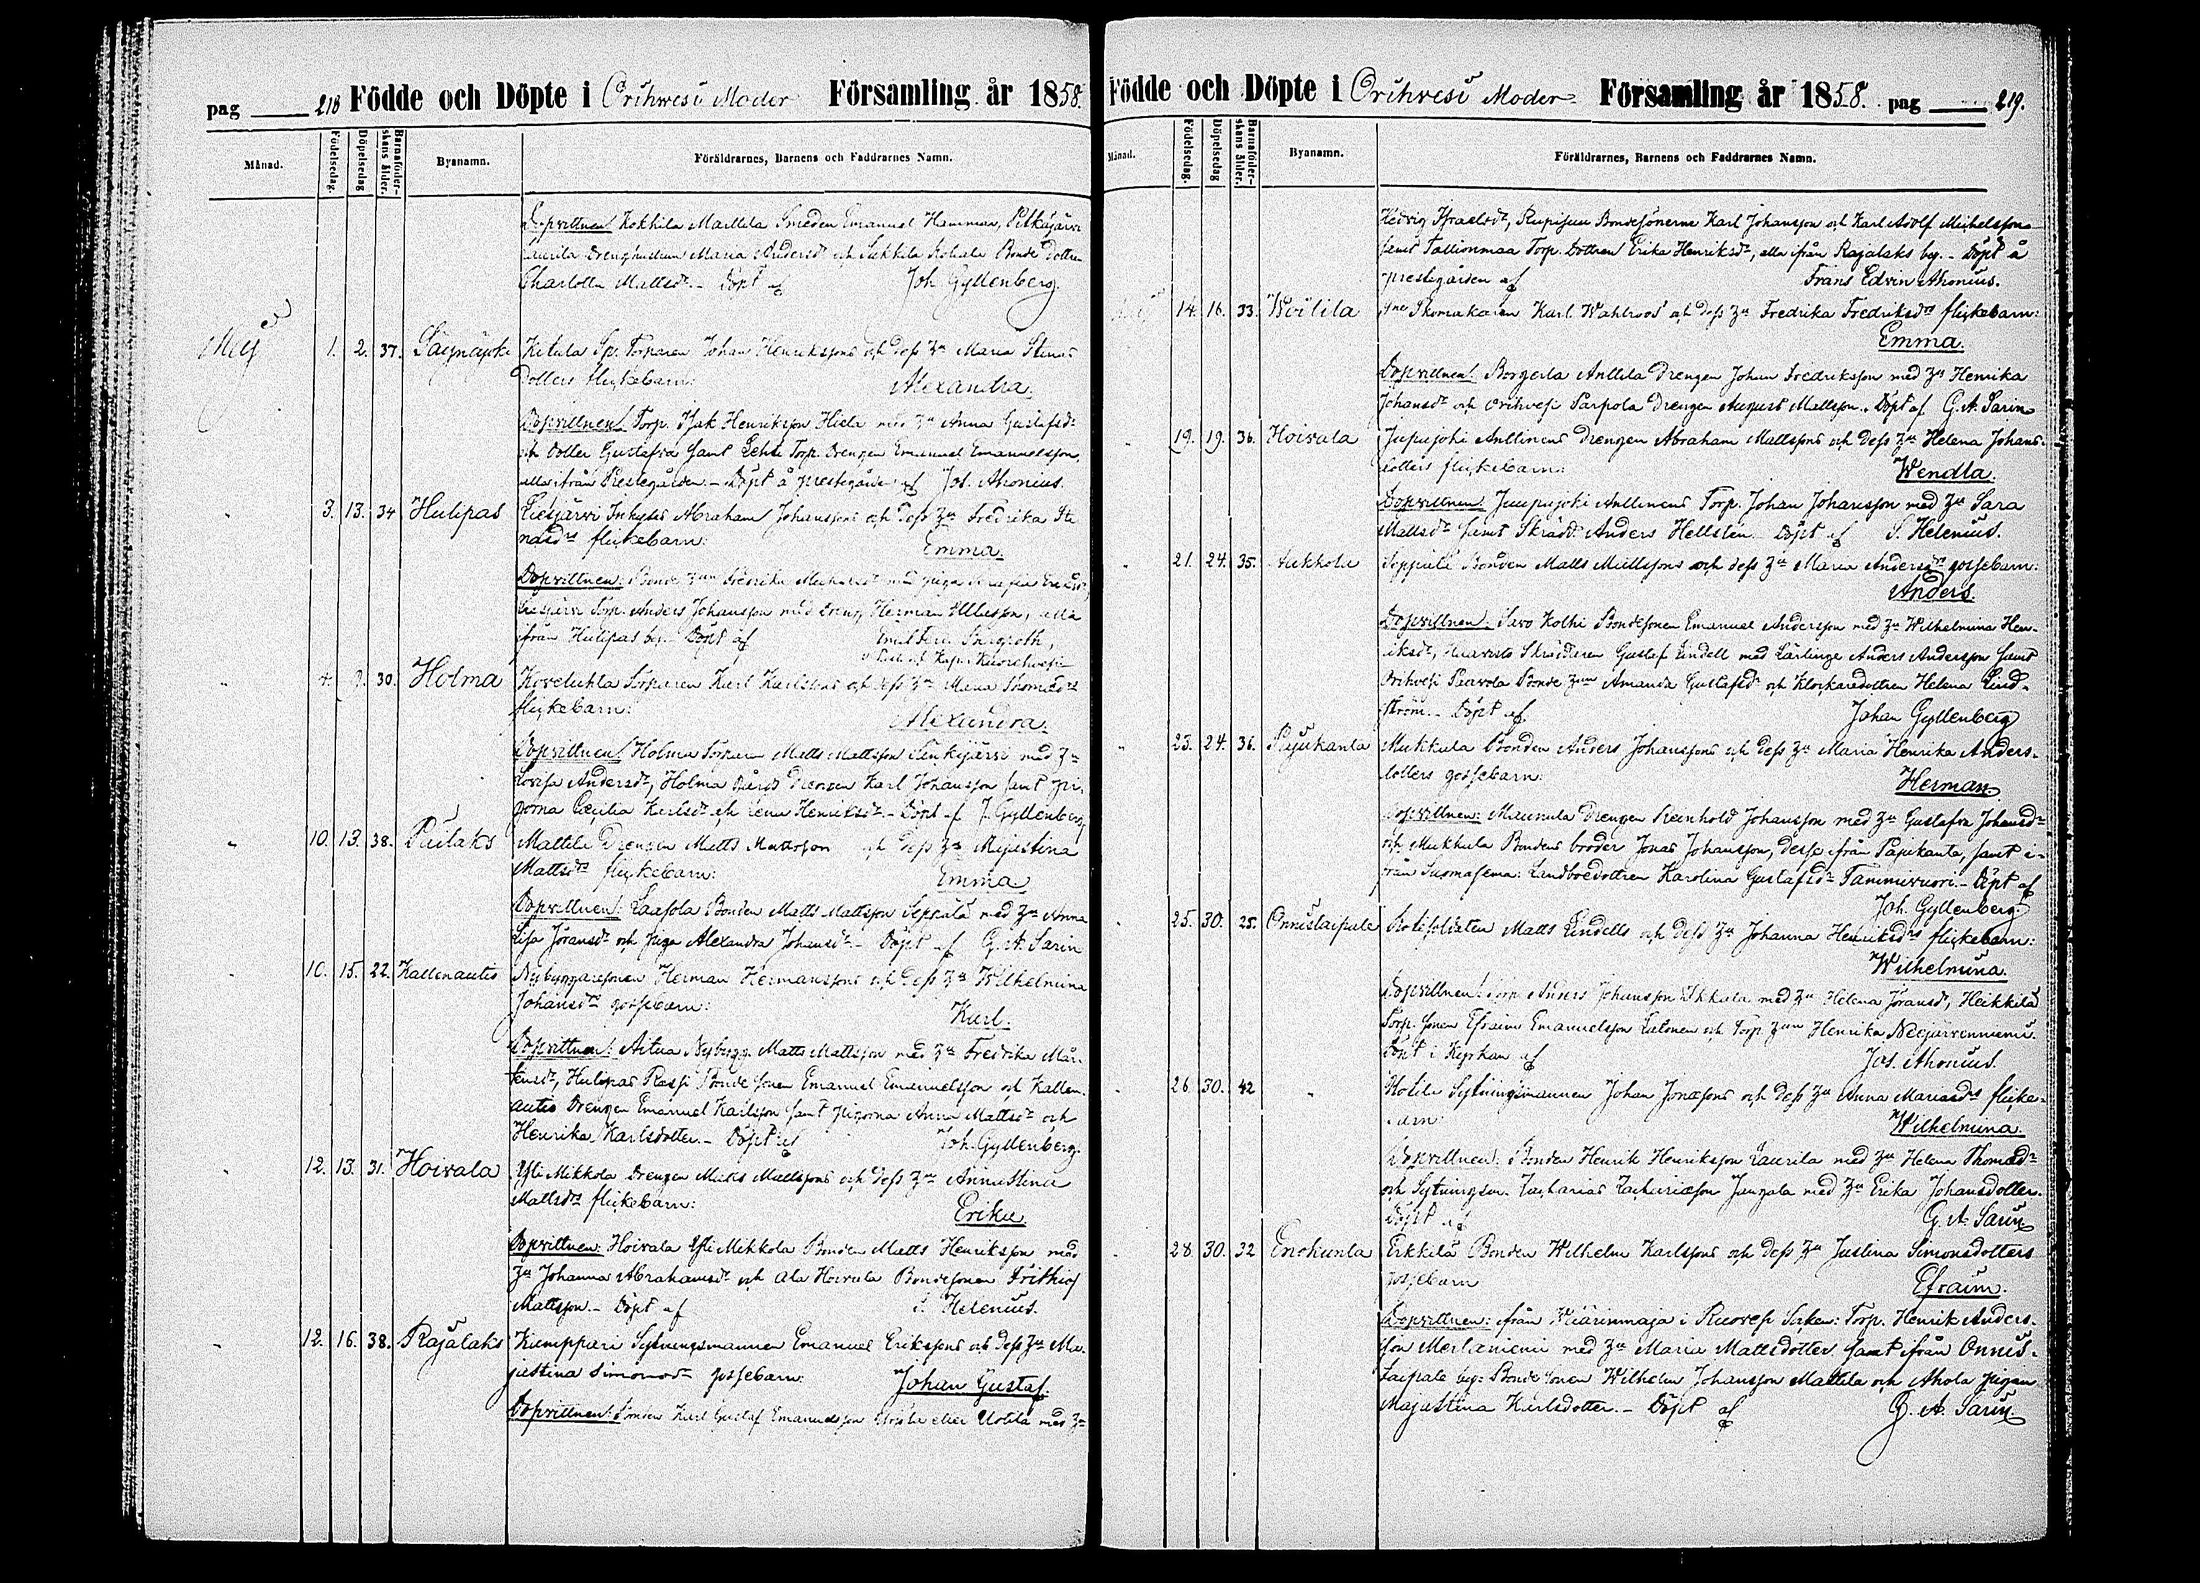 pag 218 Födde och Döpte i Orihwesi Moder Församling år 1858.
Månad. Födelsedag. Döpelsedag Barnaföderskans ålder. Byanamn. Föräldrarnes, Barnens och Faddrarnes Namn.
Dopvittnen: Kokkila Marttila Smeden Emanuel Hemman, Pitkäjärvi
Maria Andersdr och Bonde Dottren
Charlotta Mattsdr. – Döpt af Joh Gyllenberg.
Maj 1. 2. 37. Säynäjoki Kitula Sp. Torparen Johan Henrikssons och dess Hu Maria Stinas
Dotters flickebarn: Alexandra.
Dopvittnen: Torp. Isak Henriksson Hiela med Hu Anna Gustafsdr
och Dotter Gustafva samt Lehti Torp. Drengen Emanuel Emanuelsson,
alla ifrån Prestegården. – Döpt å prestegården af Jos. Ahonius.
3. 13. 34 Hulipas Liesjärvi Inhyses Abraham Johanssons och dess Hu Fredrika Ste
nasdrs flickebarn: Emma.
Dopvittnen: Bonde Hun Fredrika Michelsdr med piga
Liesjärvi Torp. Anders Johansson med Dreng Herman Mattsson, alla
ifrån Hulipas by. Döpt af
4. 9. 30. Holma Torparen Karl Karlssons och dess Hu Maria Thomasdrs
flickebarn: Alexandra.
Dopvittnen: Holma Torparen Matts Mattsson med Hu
Lovisa Andersdr, Holma Drengen Karl Johansson samt pi-
gorna Cecilia Karlsdr och Lena Henriksdr. – Döpt af J. Gyllenberg
10. 13. 38. Päilaks Mattila Drengen Matts Mattsson och dess Hu Majastina
Mattsdrs flickebarn: Emma
Dopvittnen: Laasola Bonden Matts Mattsson Seppälä med Hu Anna
Lisa Göransdr och piga Alexandra Johansdr – Döpt af G. A. Sarin
10. 15. 22. Kallenautio Nybyggaresonen Herman Hermanssons och dess Hu Wilhelmina
Johansdrs gossebarn: Karl.
Dopvittnen: Nybygg. Matts Mattsson med Hu Fredrika Mår-
tensdr, Hulipas Bonde sonen Emanuel Emanuelsson och Kallen-
autio Drengen Emanuel Karlsson samt pigorna Anna Mattsdr och
Henrika Karlsdotter. – Döpt af Joh. Gyllenberg.
12. 13. 31. Hoivala Yli Mikkola Drengen Matts Mattssons och dess Hu Annastina
Mattsdrs flickebarn: Erika
Dopvittnen: Hoivala Yli Mikkola Bonden Matts Henriksson med
Hu Johanna Abrahamsdr och Ala Hoivala Bondesonen Frithiof
Mattsson. – Döpt af S. Helenius.
12. 16. 38. Rajalaks Kumppari Sytningsmannen Emanuel Erikssons och dess Hu Ma-
jastina Simonsdr gossebarn: Johan Gustaf.
Dopvittnen: Karl Gustaf Emanuelsson eller Uotila med Hu
Födde och Döpte i Orihvesi Moder Församling år 1858. pag 219.
Månad. Födelsedag. Döpelsedag Barnaföderskans ålder. Byanamn. Föräldrarnes, Barnens och Faddrarnes Namn.
Hedvig Israelsdr, Bondesönerne Karl Johansson och Karl Adolf Michelsson
samt Tallionmaa Torp. Dottren Erika Henriksdr, alla ifrån Rajalaks by. – Döpt å
prestegården af Frans Edvin Ahonius.
14. 16. 33. Wörlila Skomakaren Karl Wahlroos och dess Hu Fredrika Fredriksdrs flickebarn:
Emma.
Dopvittnen: Anttila Drengen Johan Fredriksson med Hu Henrika
Johansdr och Orihvesi Sarpola Drengen August Mattsson. Döpt af G. A. Sarin
19. 19. 36. Hoivala Jupujoki Anttinens Drengen Abraham Mattssons och dess Hu Helena Johans-
dotters flickebarn: Wendla.
Dopvittnen: Juupujoki Anttinens Torp. Johan Johansson med Hu Sara
Mattsdr samt Skrädd. Anders Hellsten. Döpt af S. Helenius.
21. 24. 35. Aukkola Seppälä Bonden Matts Mattssons och dess Hu Maria Andersdrs gossebarn:
Anders.
Dopvittnen: Savo Kolhi Bondesonen Emanuel Andersson med Hu Wilhelmina Hen-
riksdr, Haavisto Skräddaren Gustaf Lindell med Lärlinge Anders Andersson samt
Orihvesi Paavola Bonde Hun Amanda Gustafsdr och Klockaredottren Helena Lind-
ström. – Döpt af Johan Gyllenberg
23. 24. 36. Pajukanta Mukkula Bonden Anders Johanssons och dess Hu Maria Henrika Anders-
dotters gossebarn: Herman
Dopvittnen: Maunula Drengen Reinhold Johansson med Hu Gustafva Johansdr
och Mukkula Bondens broder Jonas Johansson, desse ifrån Pajukanta, samt i-
från Suomasema: Landboedottren Karolina Gustafsdr Tammivuori. – Döpt af
Joh. Gyllenberg.
25. 30. 25. Onnistaipale Rotesoldaten Matts Lindells och dess Hu Johanna Henriksdrs flickebarn:
Wilhelmina.
Dopvittnen: Torp. Anders Johansson Ukkola med Hu Helena Göransdr, Heikkilä
Torp. sonen Efraim Emanuelsson Lulonen och Torp. Hun Henrika
Döpt i Kyrkan af Jos. Ahonius.
26 30. 42 " Hotila Sytningsmannen Johan Jonassons och dess Hu Anna Mariasdrs flicke-
barn Wilhelmina.
Dopvittnen: Bonden Henrik Henriksson Laurila med Hu Helena Thomasdr
och Sytningsm. Zacharias Zachariasson med Hu Erika Johansdotter.
Döpt af G. A. Sarin
28. 30. 32 Enokunta Erkkilä Bonden Wilhelm Karlssons och dess Hu Justina Simonsdotters
gossebarn Efraim.
Dopvittnen: ifrån Wäärinmaja i Ruovesi Soken: Torp. Henrik Anders-
son med Hu Maria Mattsdotter samt ifrån Onnis-
taipale by: Bonde sonen Wilhelm Johansson Mattila och Ahola pigan
Majastina Karlsdotter. – Döpt af G. A. Sarin.